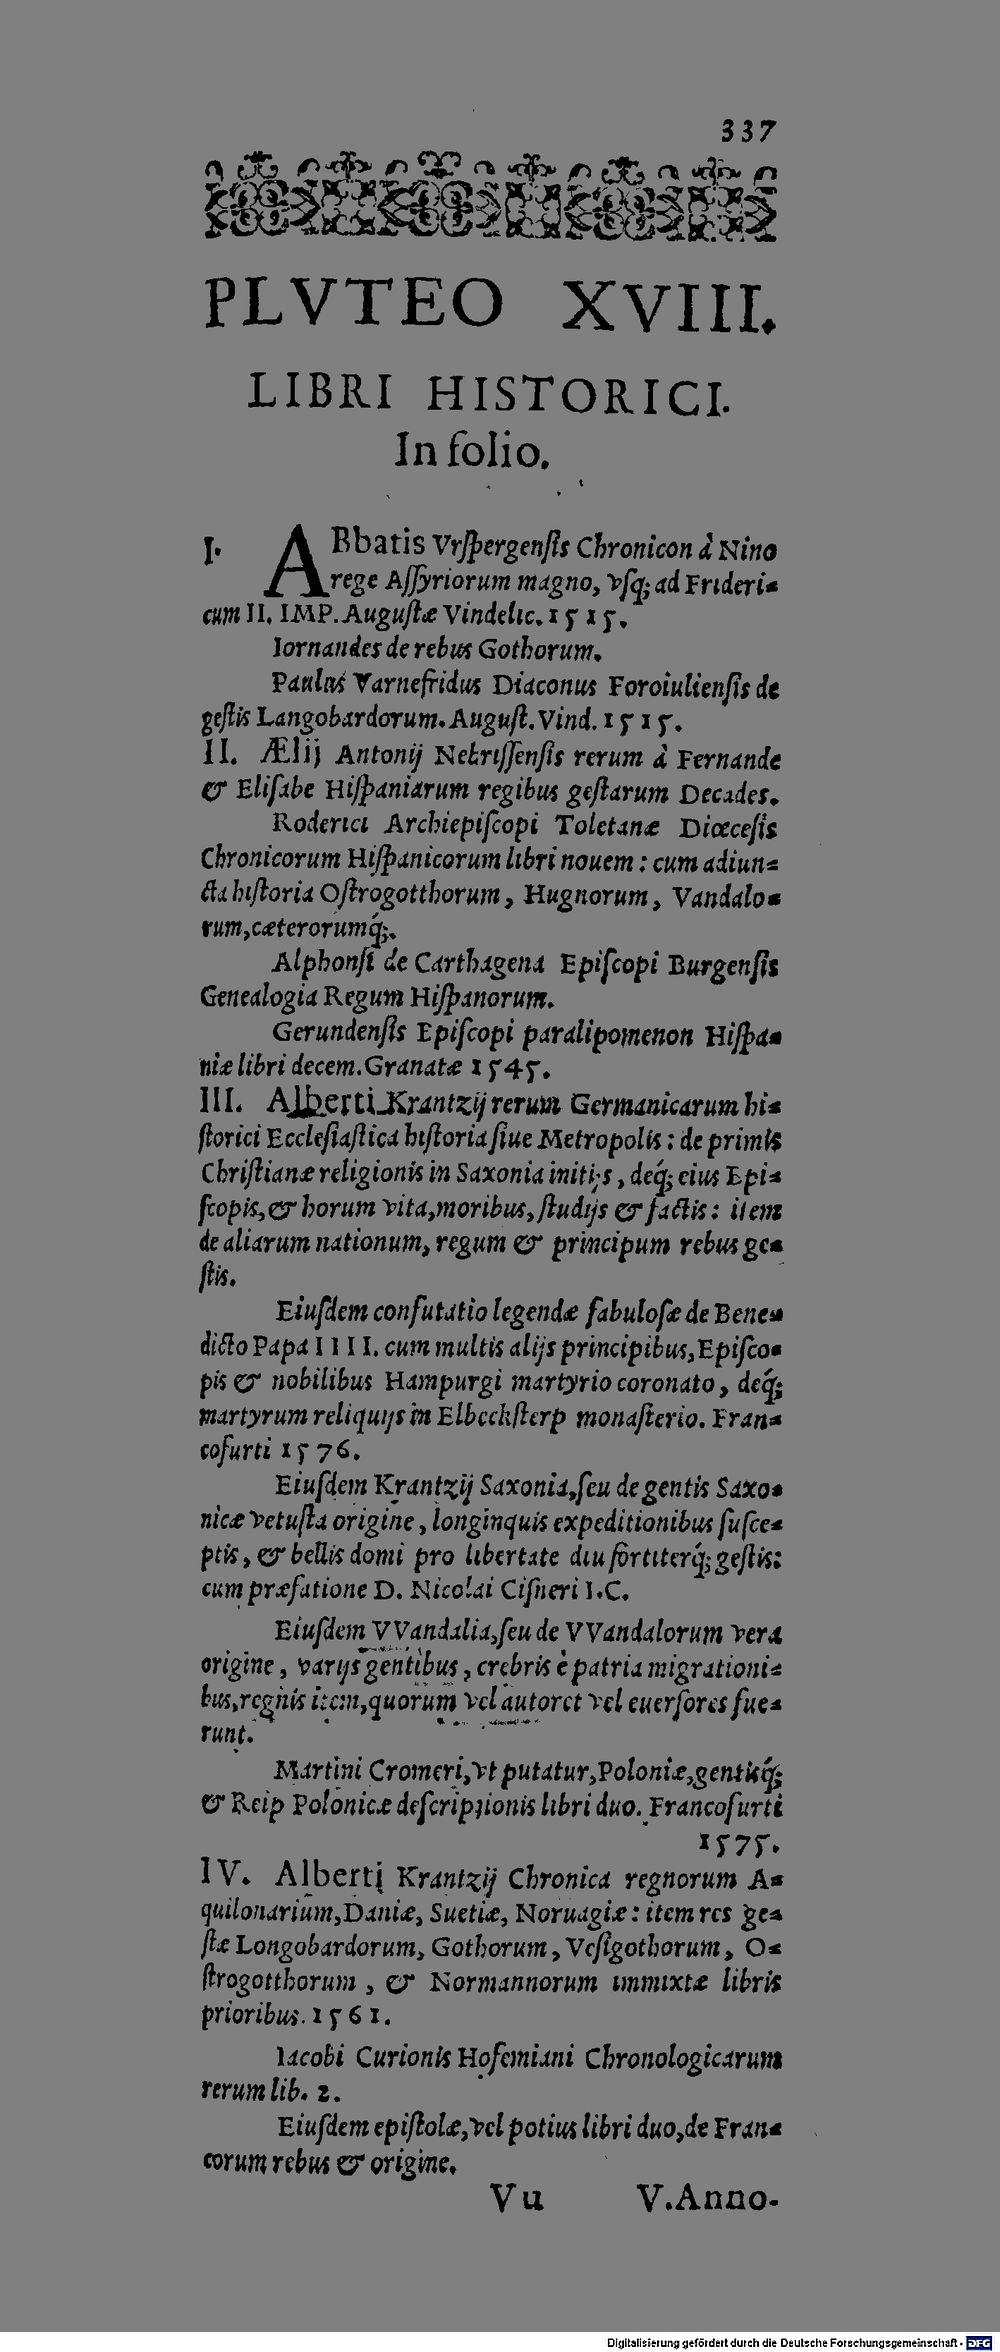 337
PLVTEO XVIII.
LIBRI HISTORICI.
In folio.
I. ABbatis Vrſpergenſis Chronicon à Nino
rege Aſſyriorum magno, vſq; ad Frideri-
cum II. IMP. Auguſtæ Vindelic. 1515.
Iornandes de rebus Gothorum.
Paulus Varnefridus Diaconus Foroiulienſis de
geſtis Langobardorum. Auguſt. Vind. 1515.
II. Ælij Antonij Nebriſſenſis rerum à Fernande
& Eliſabe Hiſpaniarum regibus geſtarum Decades.
Roderici Archiepiſcopi Toletanæ Diœceſis
Chronicorum Hiſpanicorum libri nouem: cum adiun-
cta hiſtoria Oſtrogotthorum, Hugnorum, Vandalo-
rum, cæterorumq́;.
Alphonſi de Carthagena Epiſcopi Burgenſis
Genealogia Regum Hiſpanorum.
Gerundenſis Epiſcopi paralipomenon Hiſpa-
niæ libri decem. Granatæ 1545.
III. Alberti Krantzij rerum Germanicarum hi-
ſtorici Eccleſiaſtica hiſtoria ſiue Metropolis: de primis
Chriſtianæ religionis in Saxonia initijs, deq́; eius Epi-
ſcopis, & horum vita, moribus, ſtudijs & factis: item
de aliarum nationum, regum & principum rebus ge-
ſtis.
Eiuſdem confutatio legendæ fabuloſæ de Bene-
dicto Papa IIII. cum multis alijs principibus, Epiſco-
pis & nobilibus Hampurgi martyrio coronato, deq́;
martyrum reliquijs in Elbeckſterp monaſterio. Fran-
cofurti 1576.
Eiuſdem Krantzij Saxonia, ſeu de gentis Saxo-
nicæ vetuſta origine, longinquis expeditionibus ſuſce-
ptis, & bellis domi pro libertate diu fortiterq́; geſtis:
cum præfatione D. Nicolai Ciſneri I.C.
Eiuſdem VVandalia, ſeu de VVandalorum vera
origine, varijs gentibus, crebris è patria migrationi-
bus, regnis item, quorum vel autoret vel euerſores fue-
runt.
Martini Cromeri, vt putatur, Poloniæ, gentisq́;
& Reip Polonicæ deſcriptionis libri duo. Francofurti
1575.
IV. Alberti Krantzij Chronica regnorum A-
quilonarium, Daniæ, Suetiæ, Noruagiæ: item res ge-
ſtæ Longobardorum, Gothorum, Veſigothorum, O-
ſtrogotthorum, & Normannorum immixtæ libris
prioribus. 1561.
Iacobi Curionis Hofemiani Chronologicarum
rerum lib. 2.
Eiuſdem epiſtolæ, vel potius libri duo, de Fran-
corum rebus & origine.
Vu V. Anno-
Digitalisierung gefördert durch die Deutsche Forschungsgemeinschaft - DFG